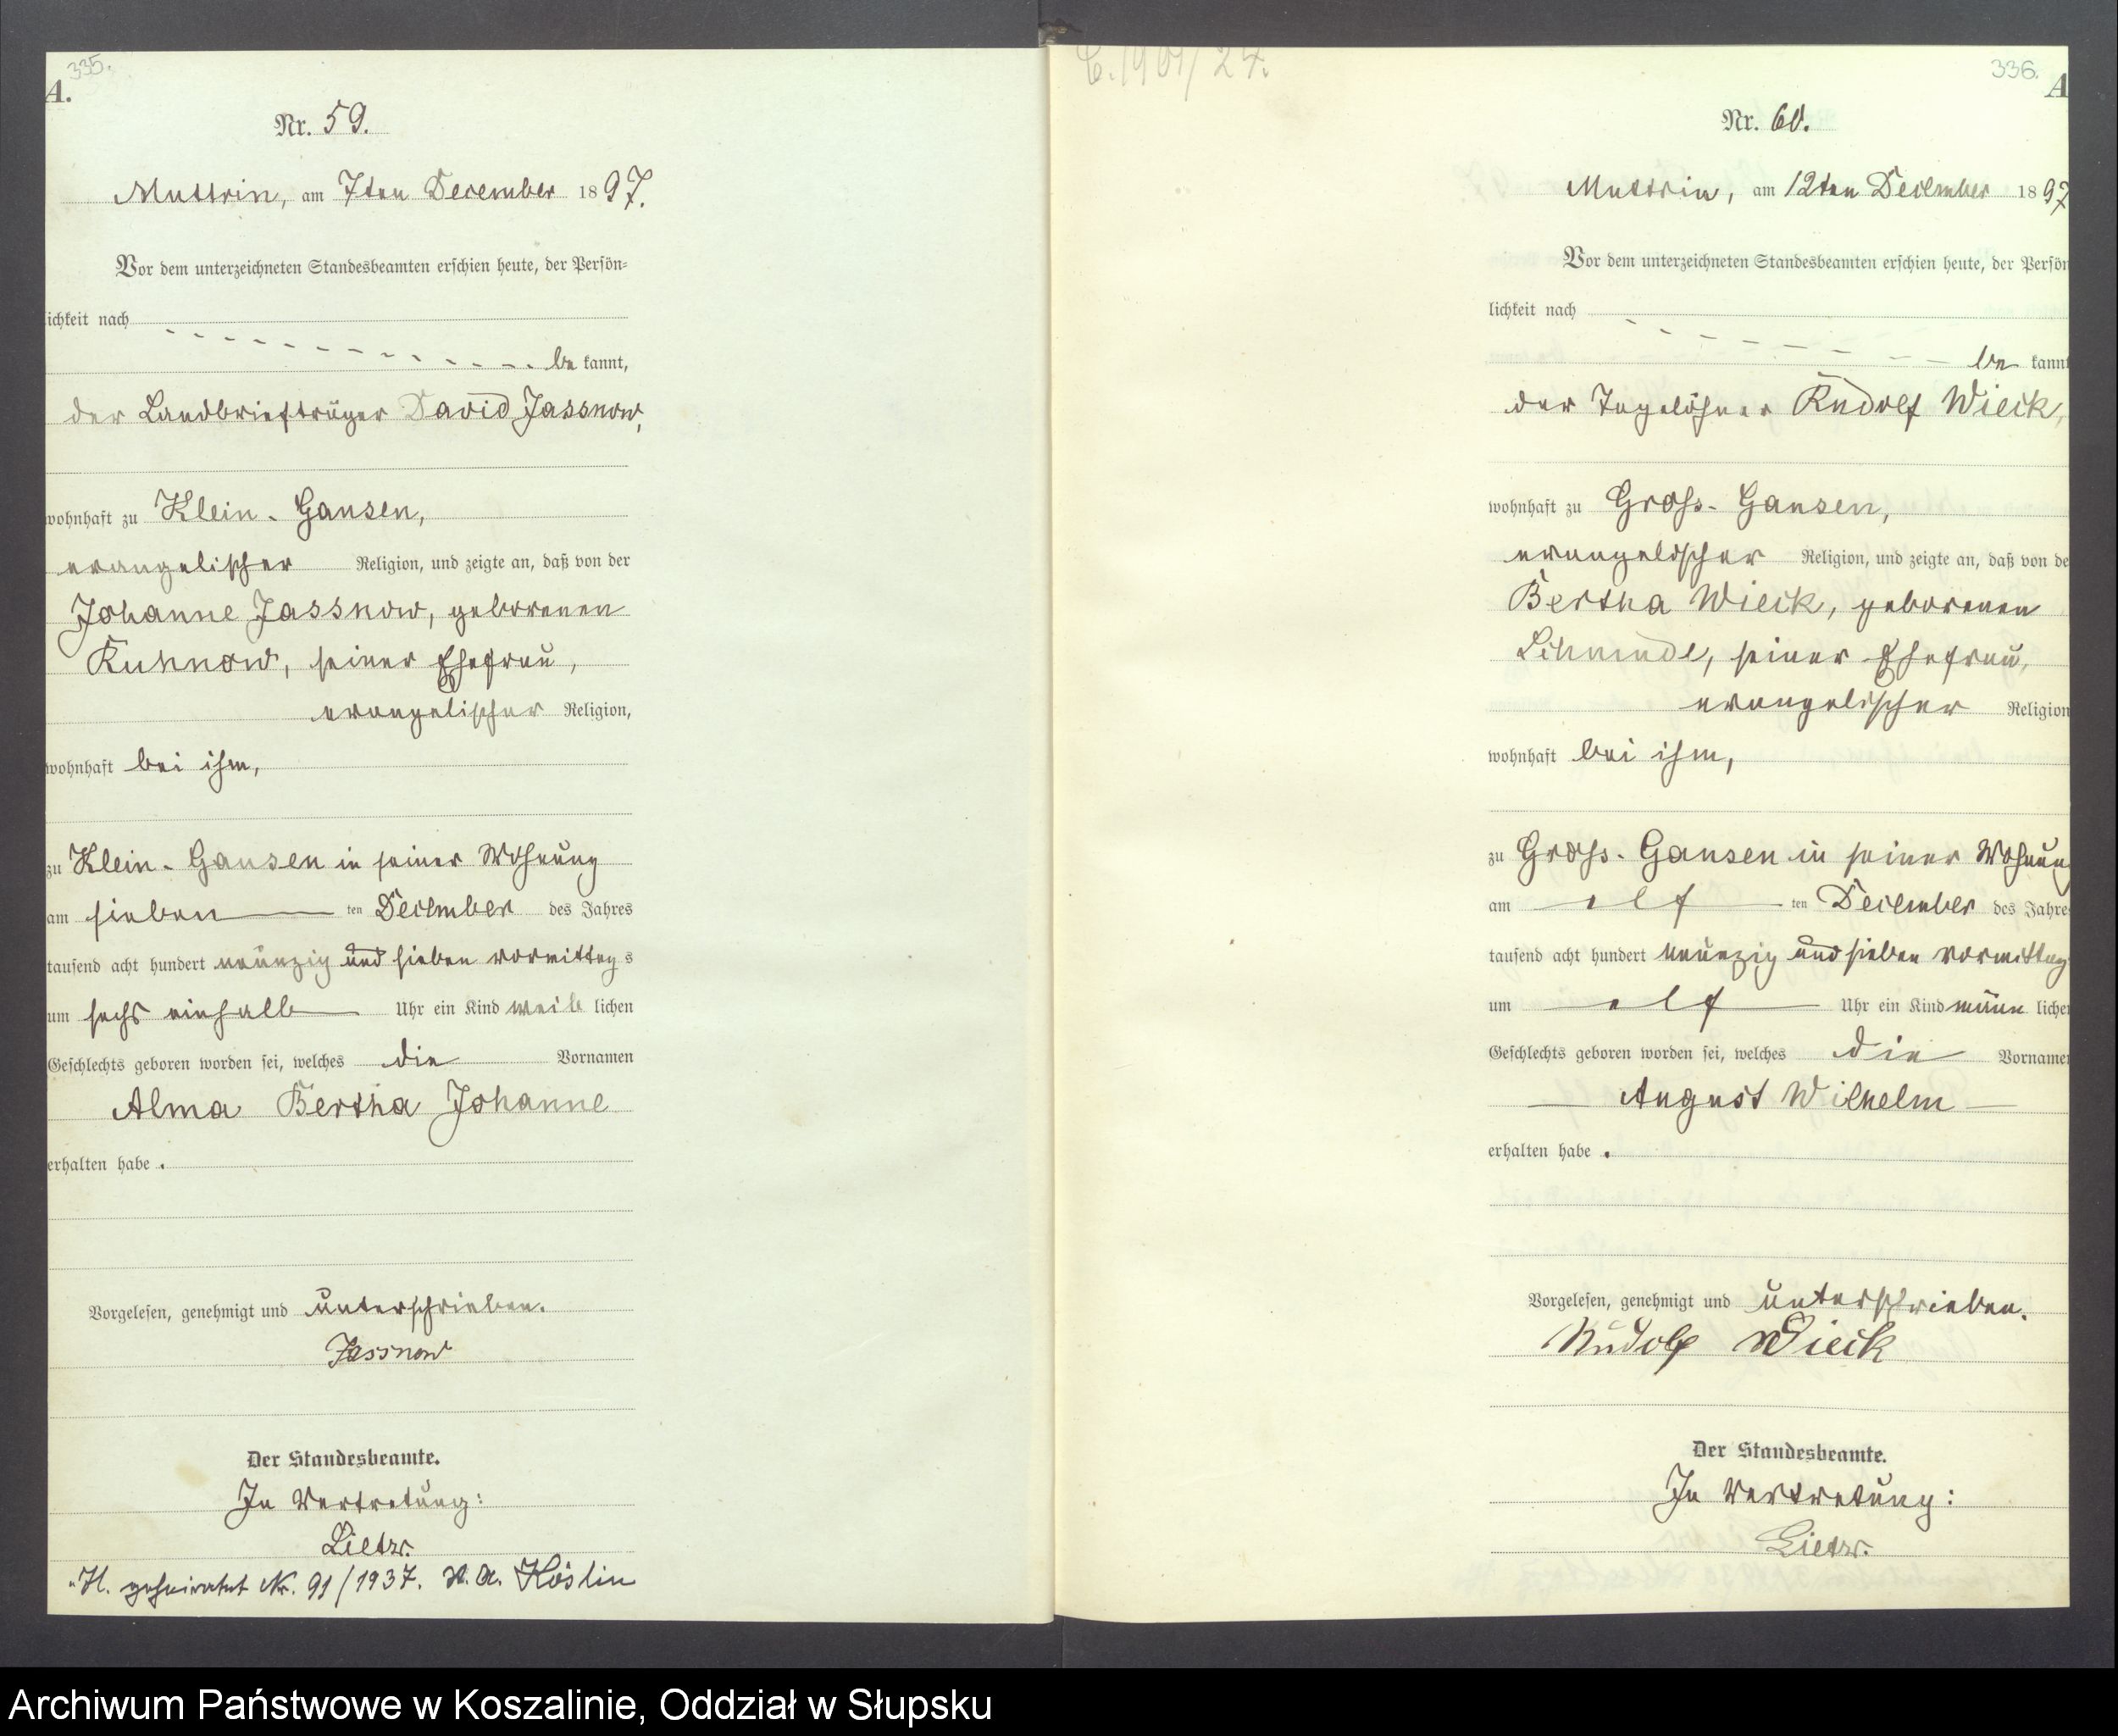 335.
A.
Nr. 59.
Muttrin, am 7ten December 1897.
Vor dem unterzeichneten Standesbeamten erschien heute, der Persön-
lichkeit nach
be kannt,
der Landbriefträger David Jassnow,
wohnhaft zu Klein-Gansen,
evangelischer Religion, und zeigte an, daß von der
Johanne Jassnow, geborenen
Kuhnow, seiner Ehefrau,
evangelischer Religion,
wohnhaft bei ihm,
zu Klein-Gansen in seiner Wohnung
am sieben ten December des Jahres
tausend acht hundert neunzig und sieben vormittags
um sechs einhalb Uhr ein Kind weiblichen
Geschlechts geboren worden sei, welches die Vornamen
Alma Bertha Johanne
erhalten habe.
Vorgelesen, genehmigt und unterschrieben.
Jassnow
Der Standesbeamte.
In Vertretung:
Lietzr.
geheiratet Nr. 91/1937. St. A. Köslin
336.
A
Nr. 60.
Muttrin, am 12ten December 1897
Vor dem unterzeichneten Standesbeamten erschien heute, der Persön
lichkeit nach
be kannt
der Tagelöhner Rudolf Wieck,
wohnhaft zu Gross-Gansen,
evangelischer Religion, und zeigte an, daß von de
Bertha Wieck, geborenen
seiner Ehefrau,
evangelischer Religion
wohnhaft bei ihm,
zu Gross-Gansen in seiner Wohnung
am elf ten December des Jahre
tausend acht hundert neunzig und sieben vormittag
um elf Uhr ein Kind männ liche
Geschlechts geboren worden sei, welches die Vorname
August Wilhelm
erhalten habe.
Vorgelesen, genehmigt und unterschrieben.
Rudolf Wieck
Der Standesbeamte.
In Vertretung:
Lietzr.
Archiwum Państwowe w Koszalinie, Oddział w Słupsku